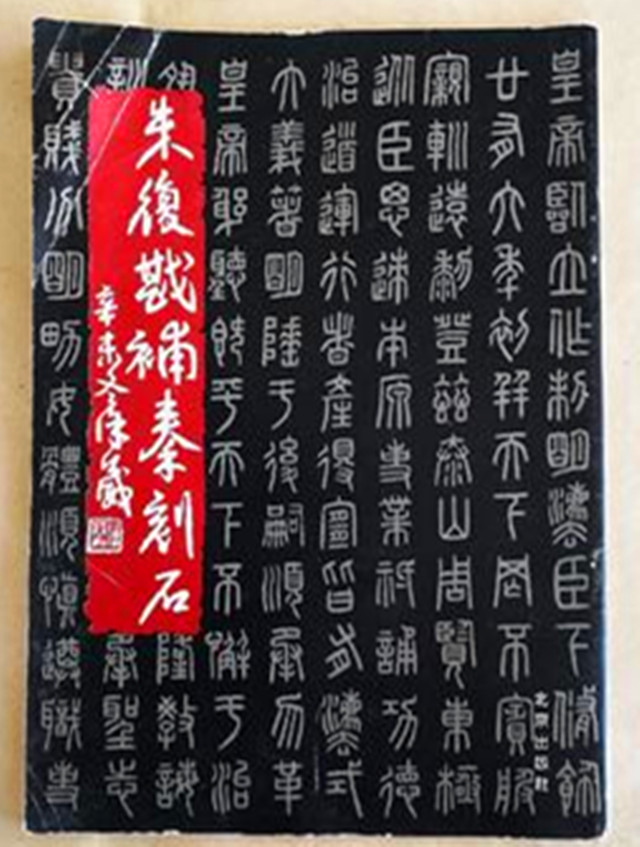 皇帝臨立作制明灋臣下脩飭
廿有六年初并天下罔不賓服
親巡遠黎登茲泰山周覽東極
臣思迹本原事業祗誦功德
治道運行者產得宜皆有灋式
大義著明陲于後嗣順承勿革
皇帝躬聽既平天下不懈于治
隆教誨
訓 承聖志
貴賤分明男女體順慎遵職事
朱復戡補秦刻石
辛未
北京出版社